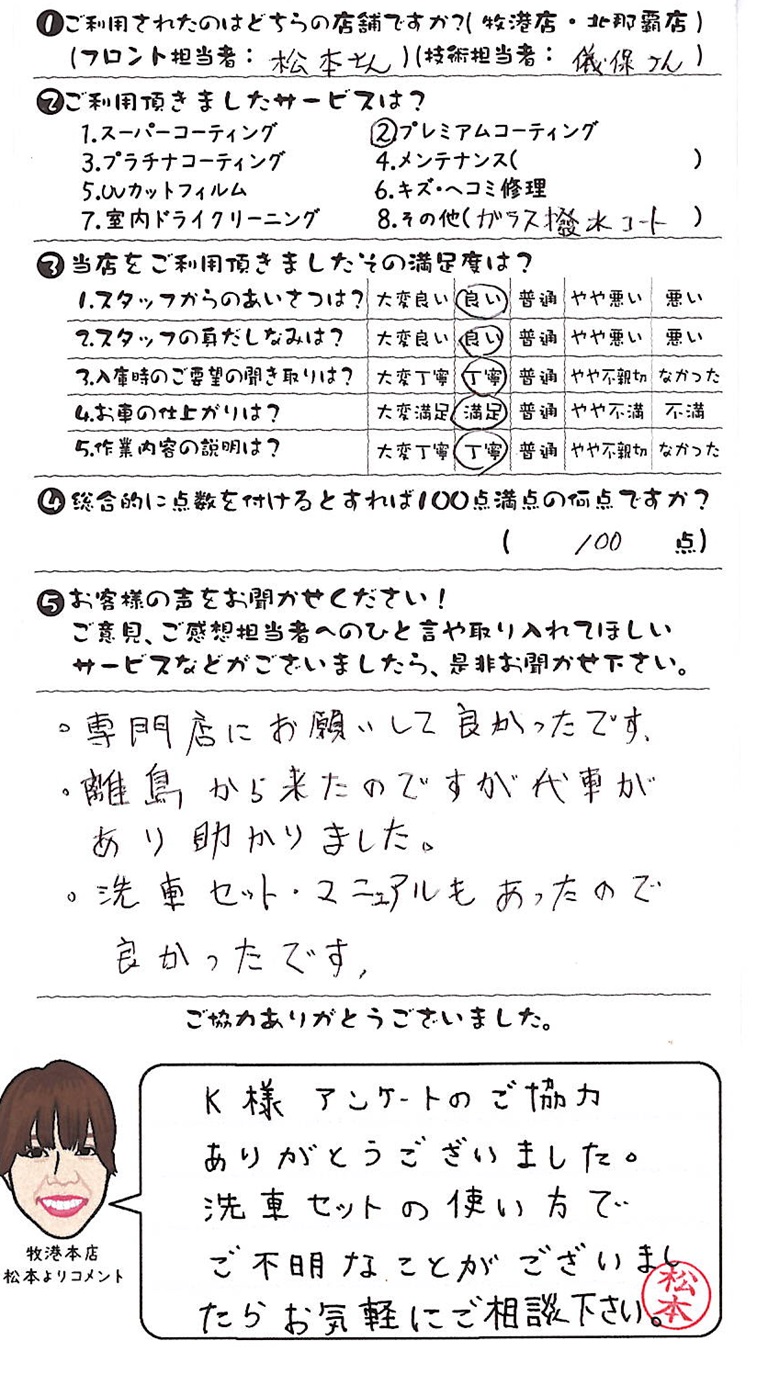 ❶ご利用されたのはどちらの店舗ですか?(牧港店・北那覇店)
(フロント担当者: 松本さん)(技術担当者: 儀保さん)
❷ご利用頂きましたサービスは?
1.スーパーコーティング ②プレミアムコーティング
3.プラチナコーティング 4.メンテナンス( )
5.UVカットフィルム 6.キズ・ヘコミ修理
7.室内ドライクリーニング 8.その他(ガラス撥水コート)
❸当店をご利用頂きましたその満足度は?
1.スタッフからのあいさつは? 大変良い 良い 普通 やや悪い 悪い
2.スタッフの身だしなみは? 大変良い 良い 普通 やや悪い 悪い
3.入庫時のご要望の聞き取りは? 大変丁寧 丁寧 普通 やや不親切 なかった
4.お車の仕上がりは? 大変満足 満足 普通 やや不満 不満
5.作業内容の説明は? 大変丁寧 丁寧 普通 やや不親切 なかった
❹総合的に点数を付けるとすれば100点満点の何点ですか?
( 100 点)
❺お客様の声をお聞かせください!
ご意見、ご感想担当者へのひと言や取り入れてほしい
サービスなどがございましたら、是非お聞かせ下さい。
。専門店にお願いして良かったです。
。離島から来たのですが代車が
あり助かりました。
。洗車セット・マニュアルもあったので
良かったです。
ご協力ありがとうございました。
K様 アンケートのご協力
ありがとうございました。
洗車セットの使い方で
ご不明なことがございまし
たらお気軽にご相談下さい。
松本
牧港本店
松本よりコメント